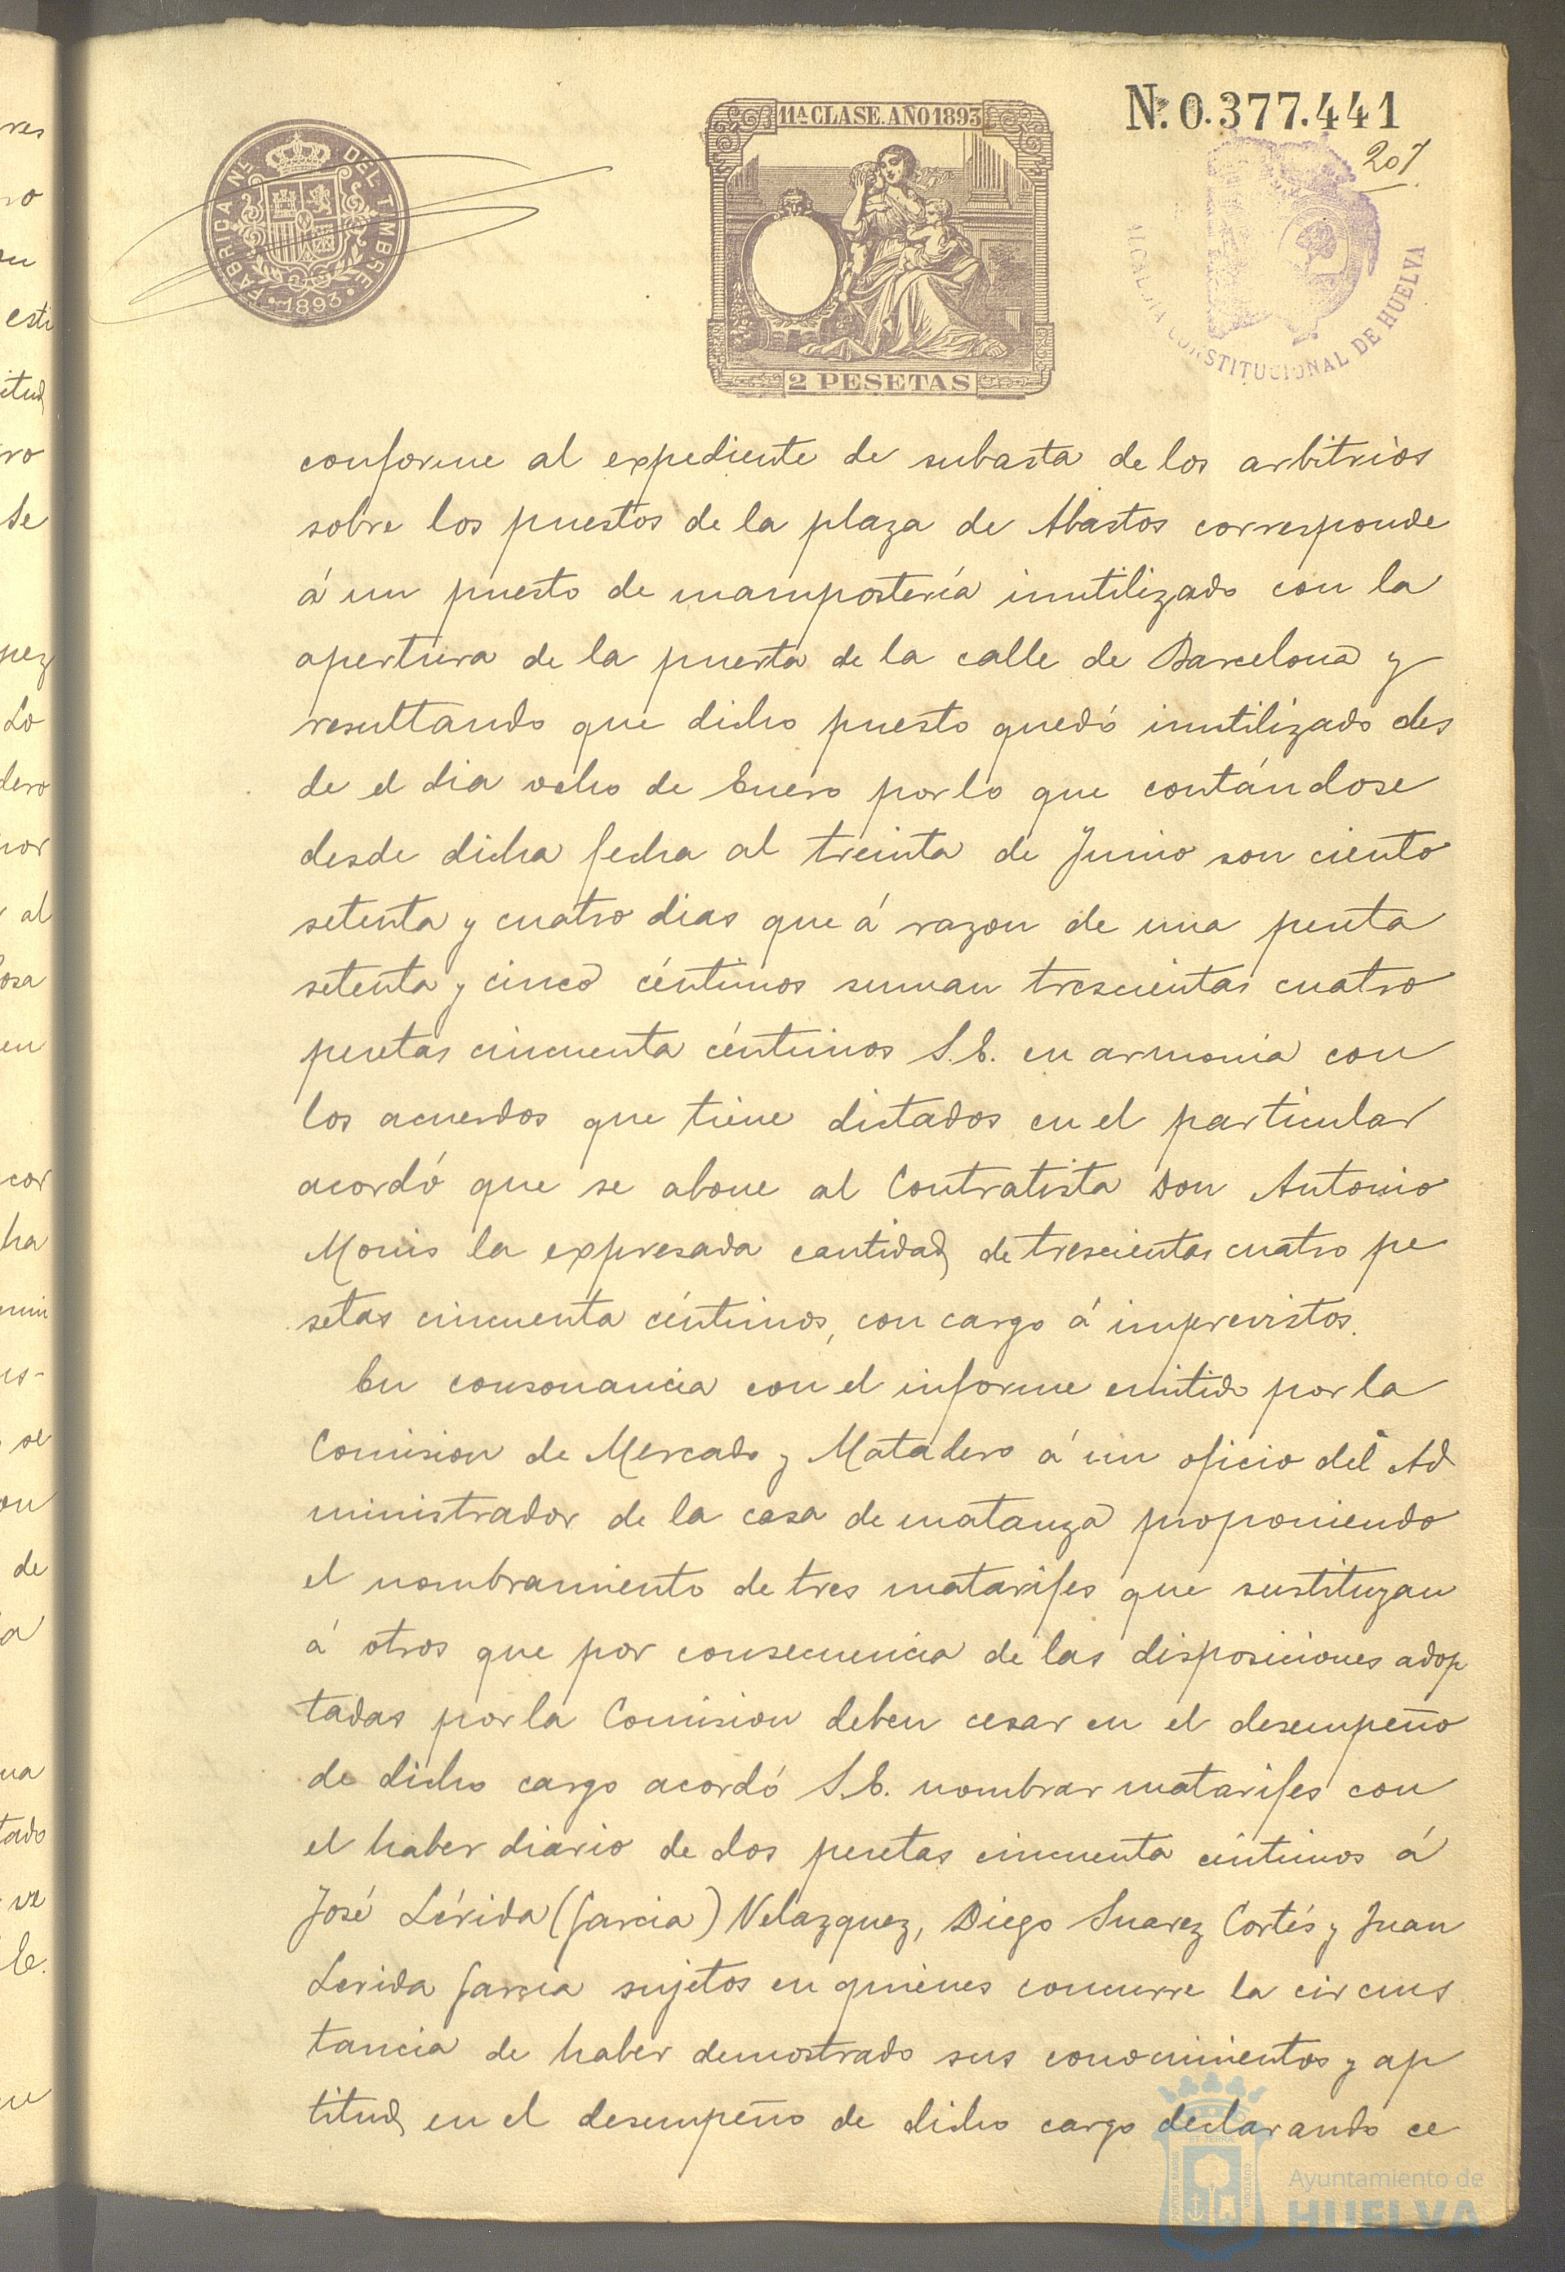 FABRICA NL DEL TIMBRE
1893
11ª CLASE. AÑO 1893
2 PESETAS
Nº. 0.377.441
207
ALCALDIA CONSTITUCIONAL DE HUELVA
conforme al expediente de subasta de los arbitrios
sobre los puestos de la plaza de Abastos corresponde
á un puesto de mampostería inutilizado con la
apertura de la puerta de la calle de Barcelona y
resultando que dicho puesto quedó inutilizado des
de el dia ocho de Enero por lo que contándose
desde dicha fecha al treinta de Junio son ciento
setenta y cuatro dias que á razon de una peseta
setenta y cinco céntimos suman trescientas cuatro
pesetas cincuenta céntimos S.E. en armonia con
los acuerdos que tiene dictados en el particular
acordó que se abone al Contratista Don Antonio
Monis la expresada cantidad de trescientas cuatro pe
setas cincuenta céntimos, con cargo á imprevistos.
En consonancia con el informe emitido por la
Comision de Mercado y Matadero á un oficio del Ad
ministrador de la casa de matanza proponiendo
el nombramiento de tres matarifes que sustituyan
á otros que por consecuencia de las disposiciones adop
tadas por la Comision deben cesar en el desempeño
de dicho cargo acordó S.E. nombrar matarifes con
el haber diario de dos pesetas cincuenta céntimos á
José Lérida (Garcia) Velazquez, Diego Suarez Cortés y Juan
Lerida Garcia sujetos en quienes concurre la circuns
tancia de haber demostrado sus conocimientos y ap
titud en el desempeño de dicho cargo declarando ce
Ayuntamiento de
HUELVA